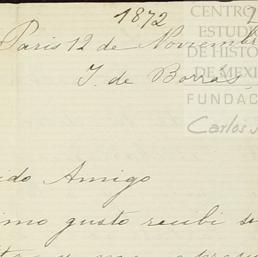 1872
Paris 12 de Noviemb
J. de Borrás
CENTRO
ESTUDI
DE HISTO
DE MEXI
FUNDAC
Carlos
ido Amigo
imo gusto recibi su